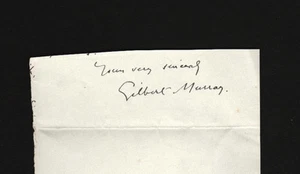 Yours very sincerely
Gilbert Murray.